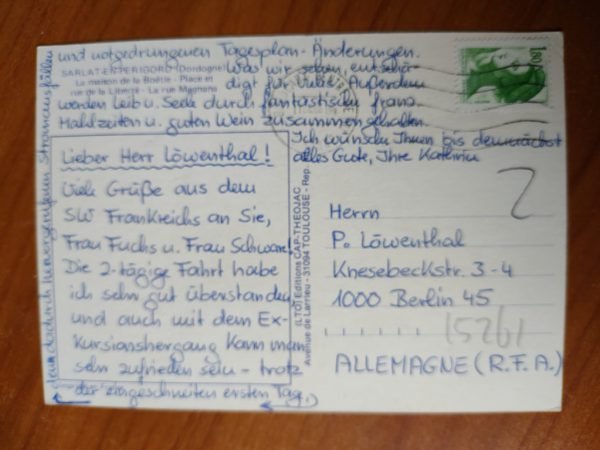 Lieber Herr Löwenthal!
Viele Grüße aus dem
SW Frankreichs an Sie,
Frau Fuchs u. Frau Schwarz!
Die 2-tägige Fahrt habe
ich sehr gut überstanden
und auch mit dem Ex-
kursionshergang kann man
sehr zufrieden sein - trotz
der eingeschneiten ersten Tage,
den dadurch hervorgerufenen Stromausfällen
und notgedrungenen Tagesplan-Änderungen.
Was wir sehen, entschä-
digt für Vieles. Außerdem
werden Leib u. Seele durch fantastische franz.
Mahlzeiten u. guten Wein zusammengehalten.
Ich wünsche Ihnen bis demnächst
alles Gute, Ihre Kathrin
SARLAT-EN-PERIGORD (Dordogne)
La maison de la Boétie - Place et
rue de la Liberté - La rue Magnane
(LTOT) Editions CAP-THEOJAC
Avenue de Larrieu - 31094 TOULOUSE - Rep.
1,80
2
Herrn
P. Löwenthal
Knesebeckstr. 3-4
1000 Berlin 45
15261
ALLEMAGNE (R.F.A.)